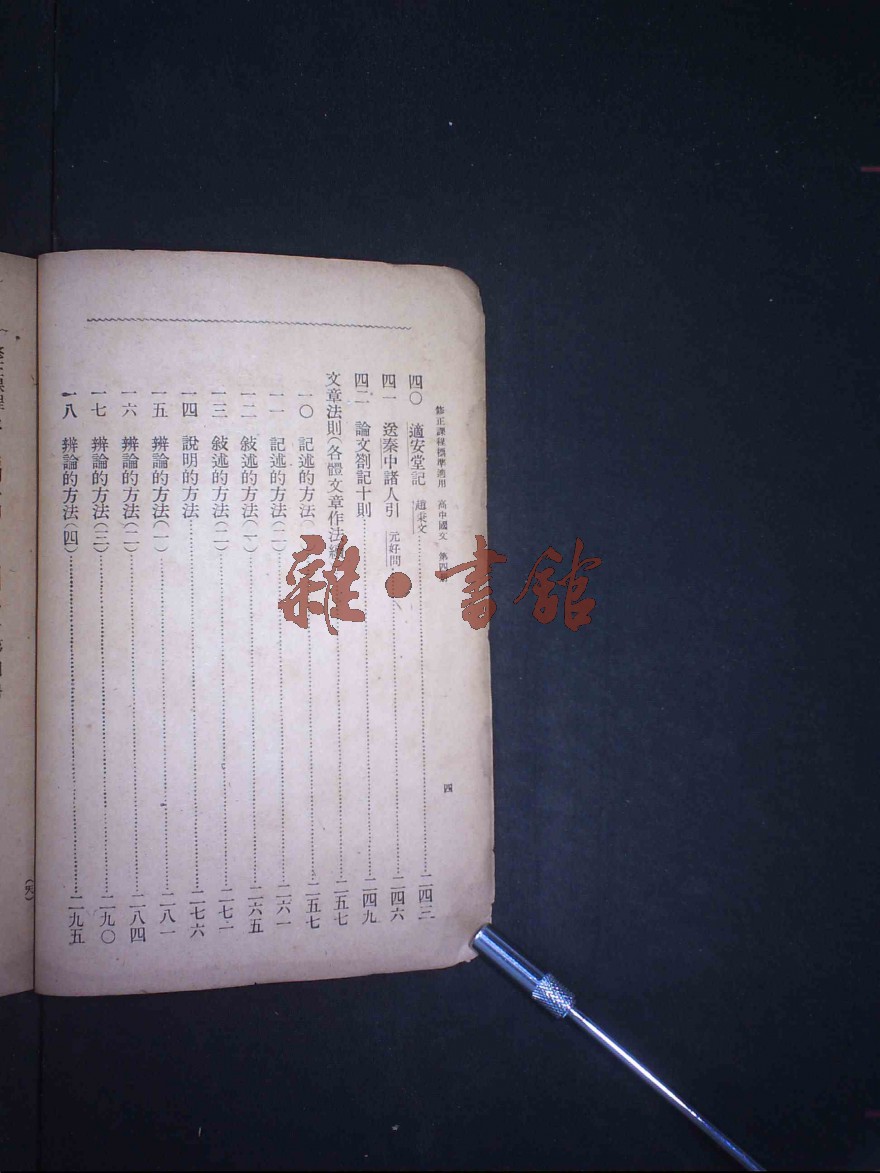 修正課程標準適用 高中國文 第四
四〇 適安堂記 趙秉文……二四三
四一 送秦中諸人引 元好問……二四六
四二 論文劄記十則……二四九
文章法則（各體文章作法……二五七
一〇 記述的方法……二五七
一一 記述的方法（二……二六一
一二 敍述的方法（一）……二六五
一三 敍述的方法（二）……二七一
一四 說明的方法……二七六
一五 辨論的方法（一）……二八一
一六 辨論的方法（二）……二八四
一七 辨論的方法（三）……二九〇
一八 辨論的方法（四）……二九五
四
雜·書館